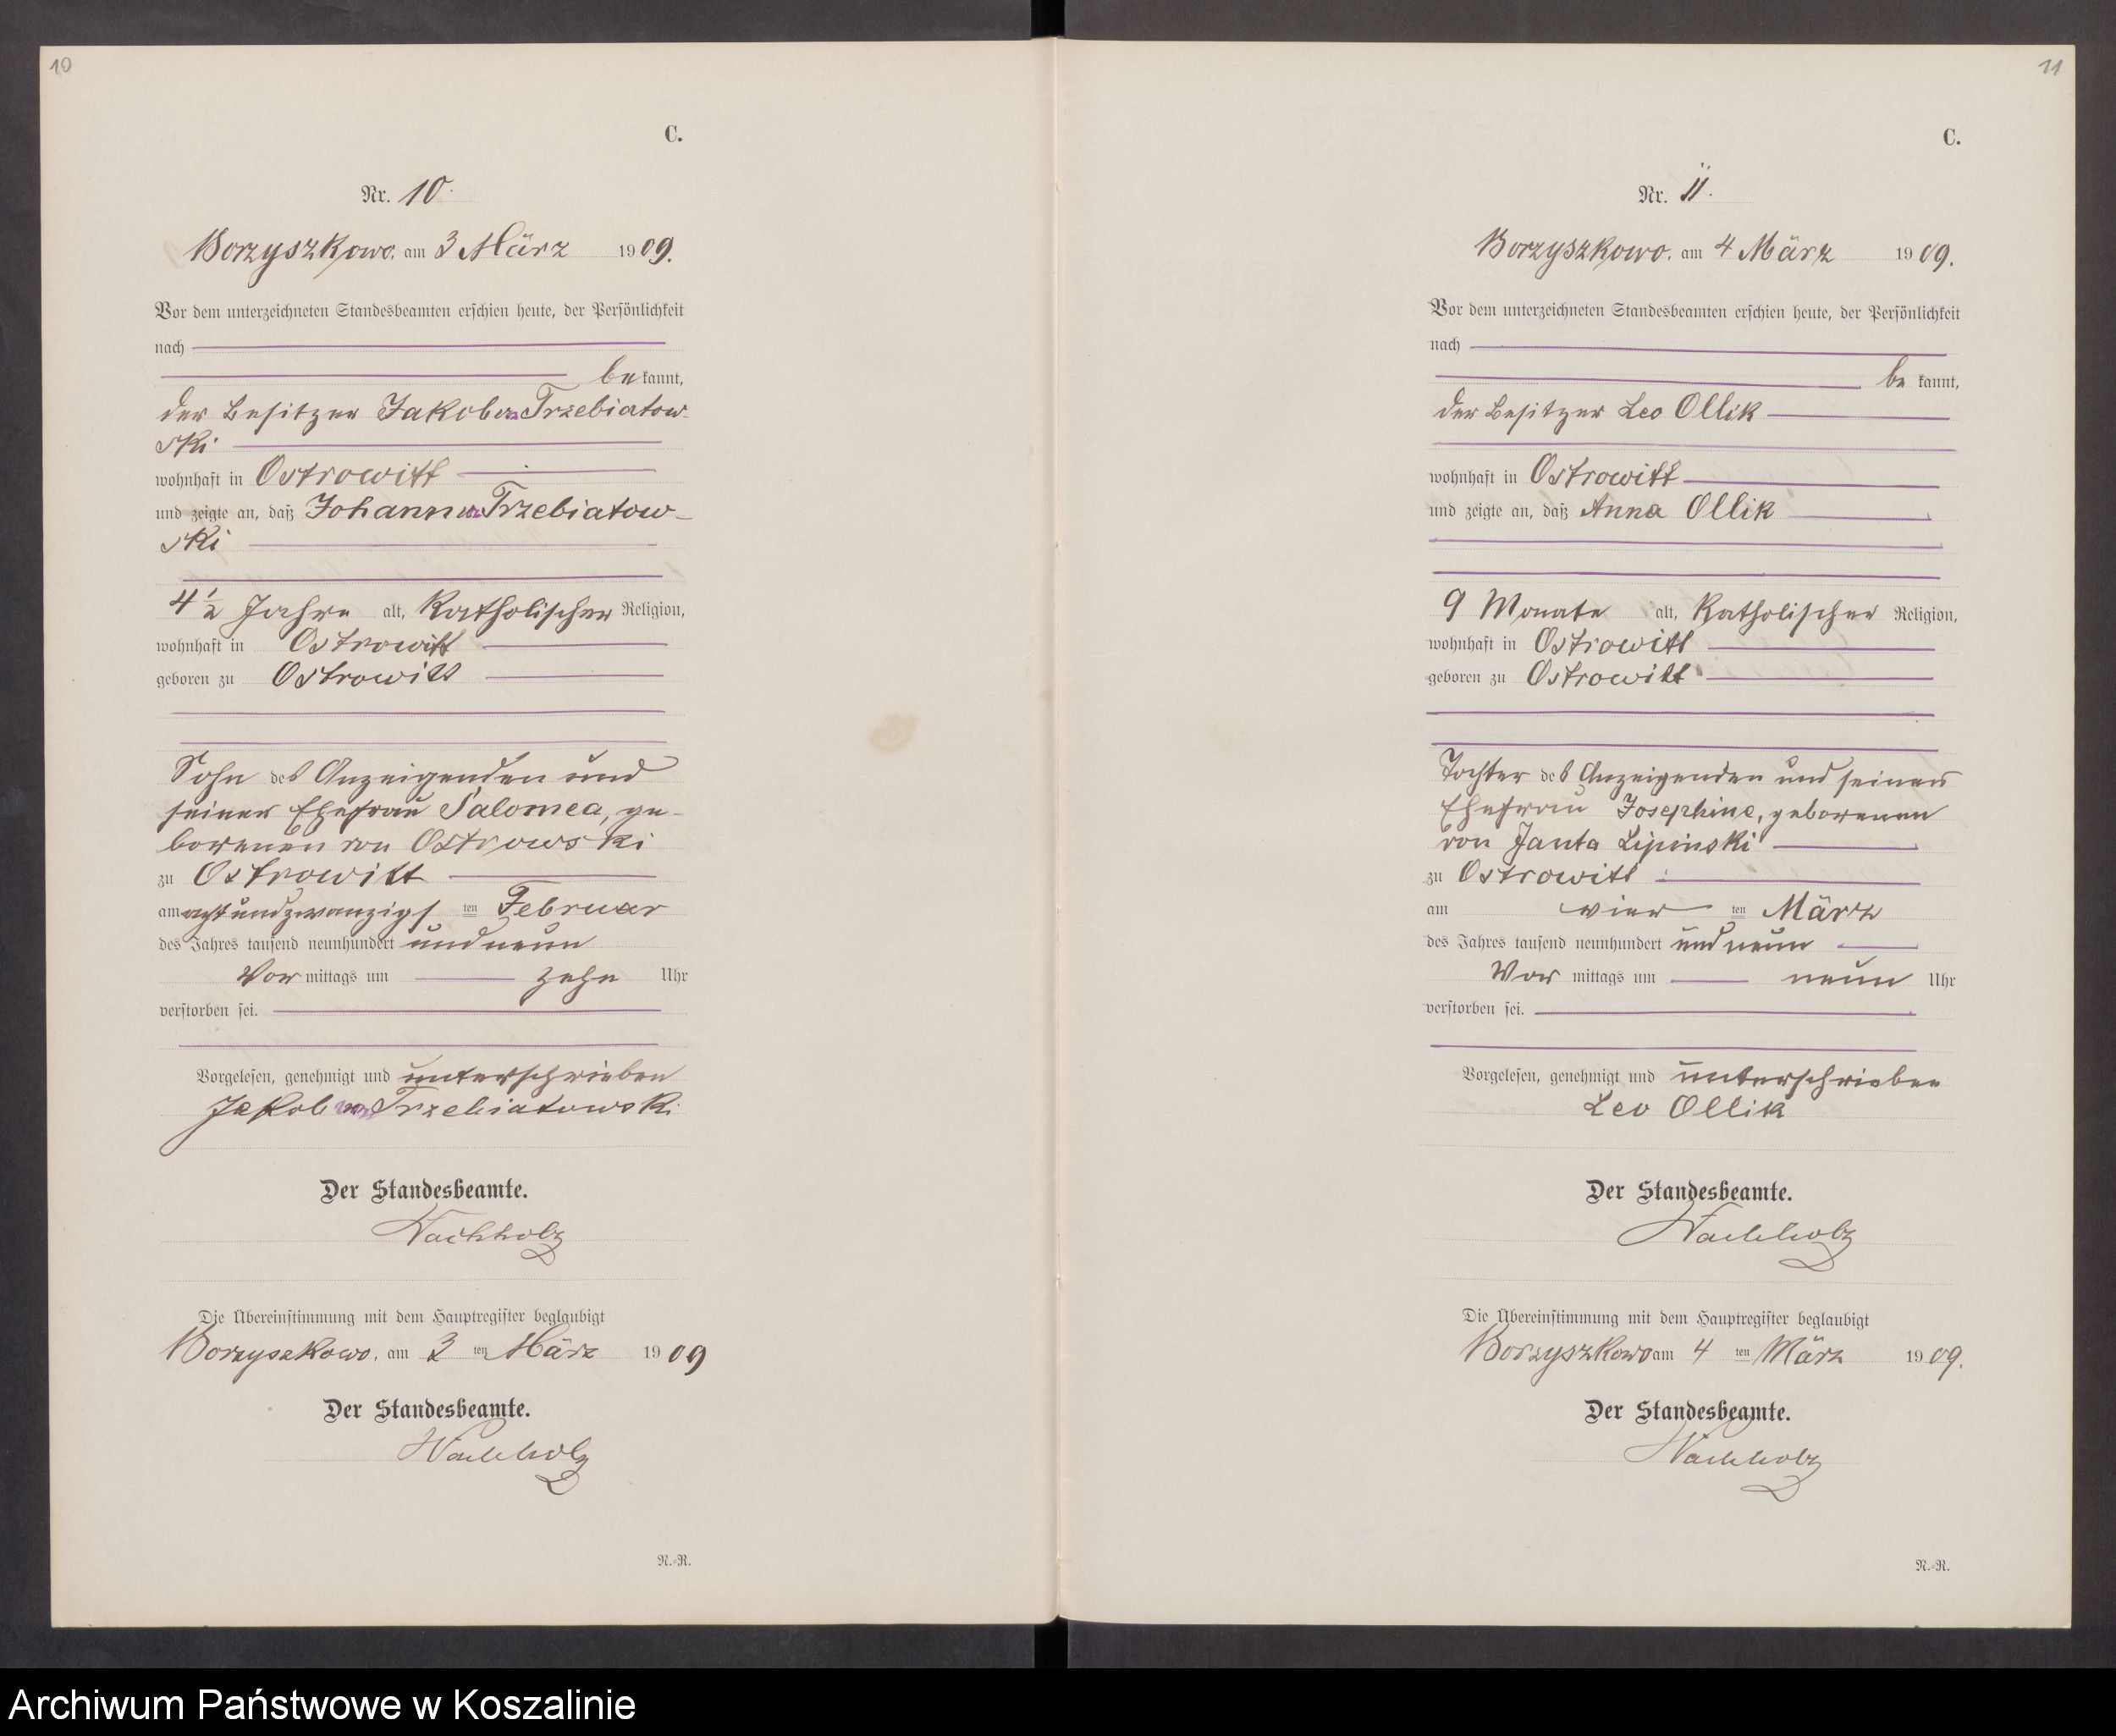 10
C.
Nr. 10.
Borzyszkowo, am 3 März 1909.
Vor dem unterzeichneten Standesbeamten erschien heute, der Persönlichkeit
nach
be kannt,
der Besitzer Jakob von Trzebiatow-
ski
wohnhaft in Ostrowitt
und zeigte an, daß Johann von Trzebiatow-
ski
4 1/2 Jahre alt, katholischer Religion,
wohnhaft in Ostrowitt
geboren zu Ostrowitt
Sohn des Anzeigenden und
seiner Ehefrau Salomea, ge-
borenen von Ostrowski
zu Ostrowitt
am achtundzwanzigsten Februar
des Jahres tausend neunhundert und neun
Vor mittags um zehn Uhr
verstorben sei.
Vorgelesen, genehmigt und unterschrieben
Jakob von Trzebiatowski
Der Standesbeamte.
Wachholz
Die Übereinstimmung mit dem Hauptregister beglaubigt
Borzyszkowo, am 3 ten März 1909
Der Standesbeamte.
Wachholz
N.-R.
11
C.
Nr. 11.
Borzyszkowo, am 4 März 1909.
Vor dem unterzeichneten Standesbeamten erschien heute, der Persönlichkeit
nach
be kannt,
der Besitzer Leo Ollik
wohnhaft in Ostrowitt
und zeigte an, daß Anna Ollik
9 Monate alt, katholischer Religion,
wohnhaft in Ostrowitt
geboren zu Ostrowitt
Tochter des Anzeigenden und seiner
Ehefrau Josephine, geborenen
von Janta Lipinski
zu Ostrowitt
am vier ten März
des Jahres tausend neunhundert und neun
Vor mittags um neun Uhr
verstorben sei.
Vorgelesen, genehmigt und unterschrieben
Leo Ollik
Der Standesbeamte.
Wachholz
Die Übereinstimmung mit dem Hauptregister beglaubigt
Borzyszkowo am 4 ten März 1909.
Der Standesbeamte.
Wachholz
N.-R.
Archiwum Państwowe w Koszalinie